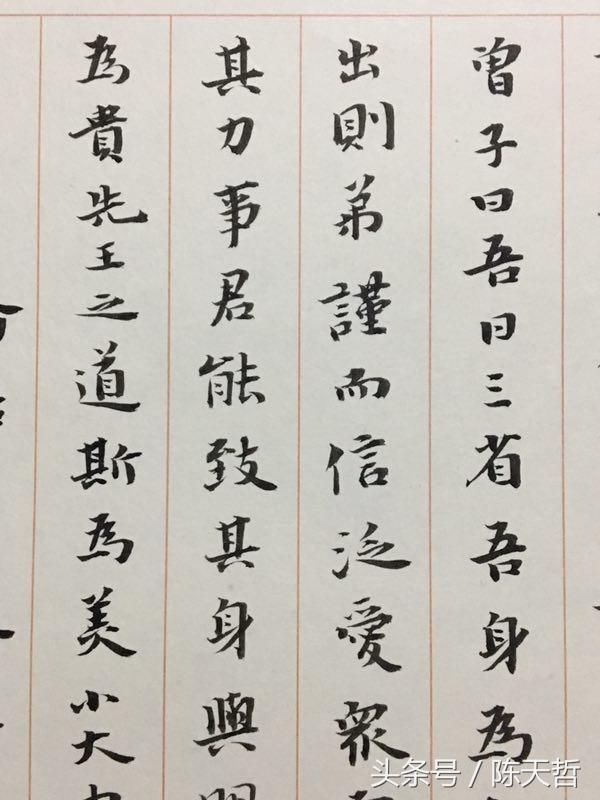 曾子曰吾日三省吾身為
出則弟謹而信泛愛眾
其力事君能致其身與
為貴先王之道斯為美小大
头条号／陈天哲